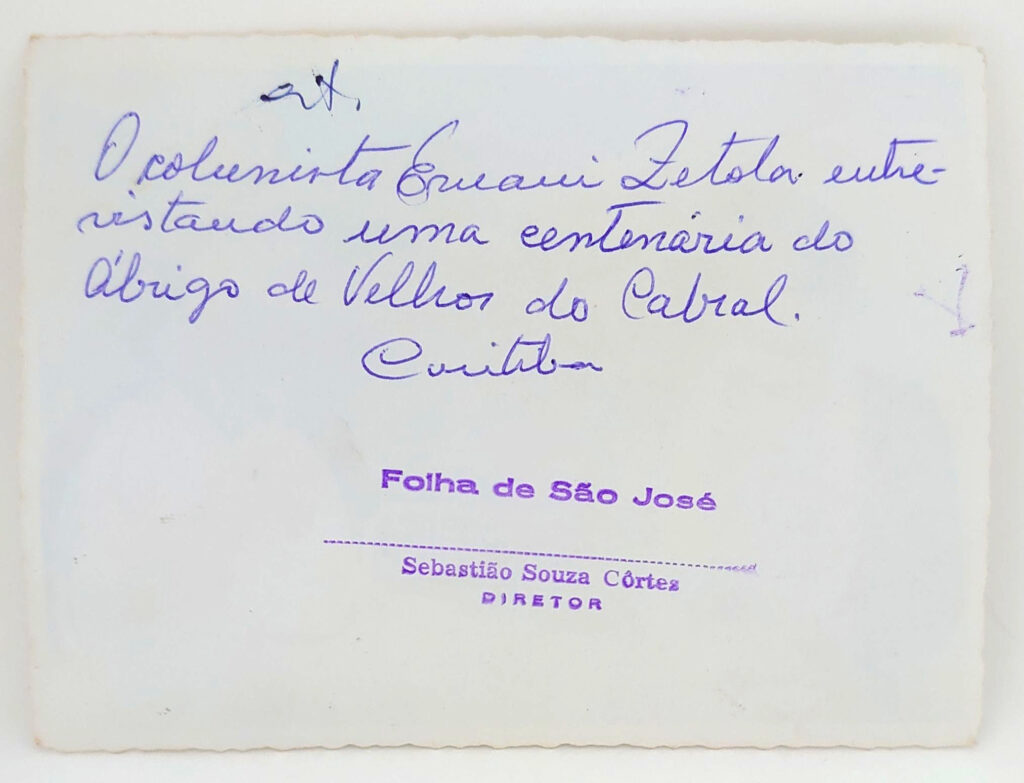 O colunista Ernani Zetola entre-
vistando uma centenária do
Ábrigo de Velhos do Cabral.
Curitiba
Folha de São José
Sebastião Souza Côrtes
DIRETOR